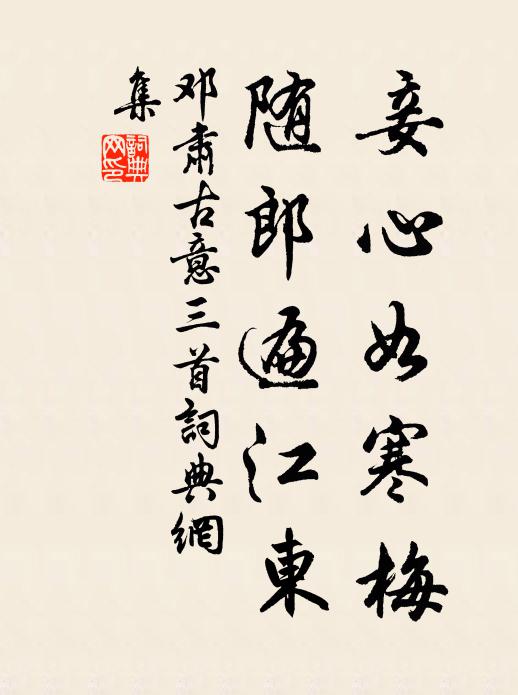 妾心如寒梅
随郎遍江東
邓肅古意三首詞典網
集
詞典
网印